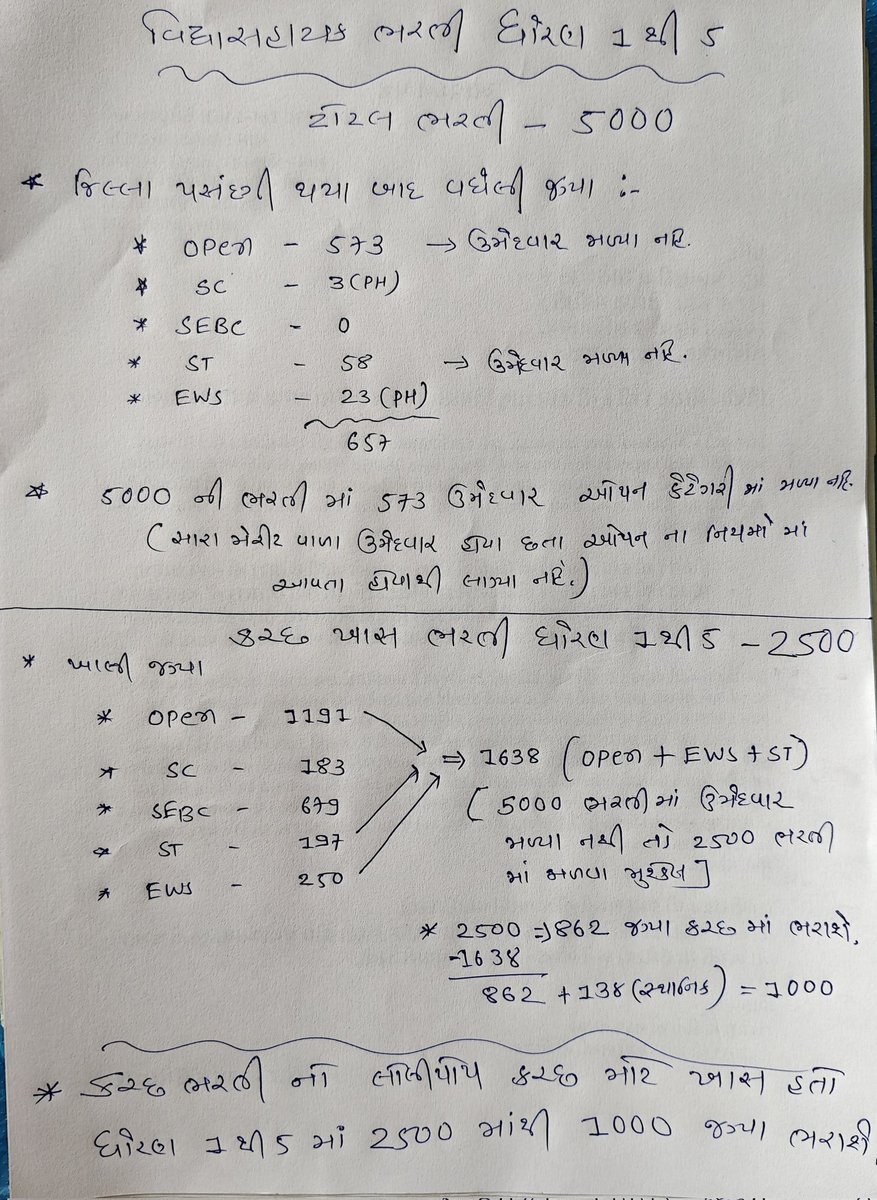 વિદ્યાસહાયક ભરતી ધોરણ 1 થી 5
ટોટલ ભરતી - 5000
* જિલ્લા પસંદગી થયા બાદ વધેલી જગ્યા :-
* OPen - 573 → ઉમેદવાર મળ્યા નહિ.
* SC - 3(PH)
* SEBC - 0
* ST - 58 → ઉમેદવાર મળ્યા નહિ.
* EWS - 23 (PH)
657
* 5000 ની ભરતી માં 573 ઉમેદવાર ઓપન કેટેગરી માં મળ્યા નહિ.
(સારા મેરીટ વાળા ઉમેદવાર હોવા છતા ઓપન ના નિયમો માં
આવતા હોવાથી લાગ્યા નહિ.)
કચ્છ ખાસ ભરતી ધોરણ 1 થી 5 - 2500
* ખાલી જગ્યા
* OPen - 1191
* SC - 183
* SEBC - 679
* ST - 197
* EWS - 250
⇒ 1638 (OPen + EWS + ST)
[5000 ભરતીમાં ઉમેદવાર
મળ્યા નથી તો 2500 ભરતી
માં મળવા મુશ્કેલ]
* 2500 ⇒ 862 જગ્યા કચ્છ માં ભરાશે.
-1638
862 + 138 (સ્થાનિક) = 1000
* કચ્છ ભરતી નો લોલીપોપ કચ્છ માટે ખાસ હતો
ધોરણ 1 થી 5 માં 2500 માંથી 1000 જગ્યા ભરાશે.